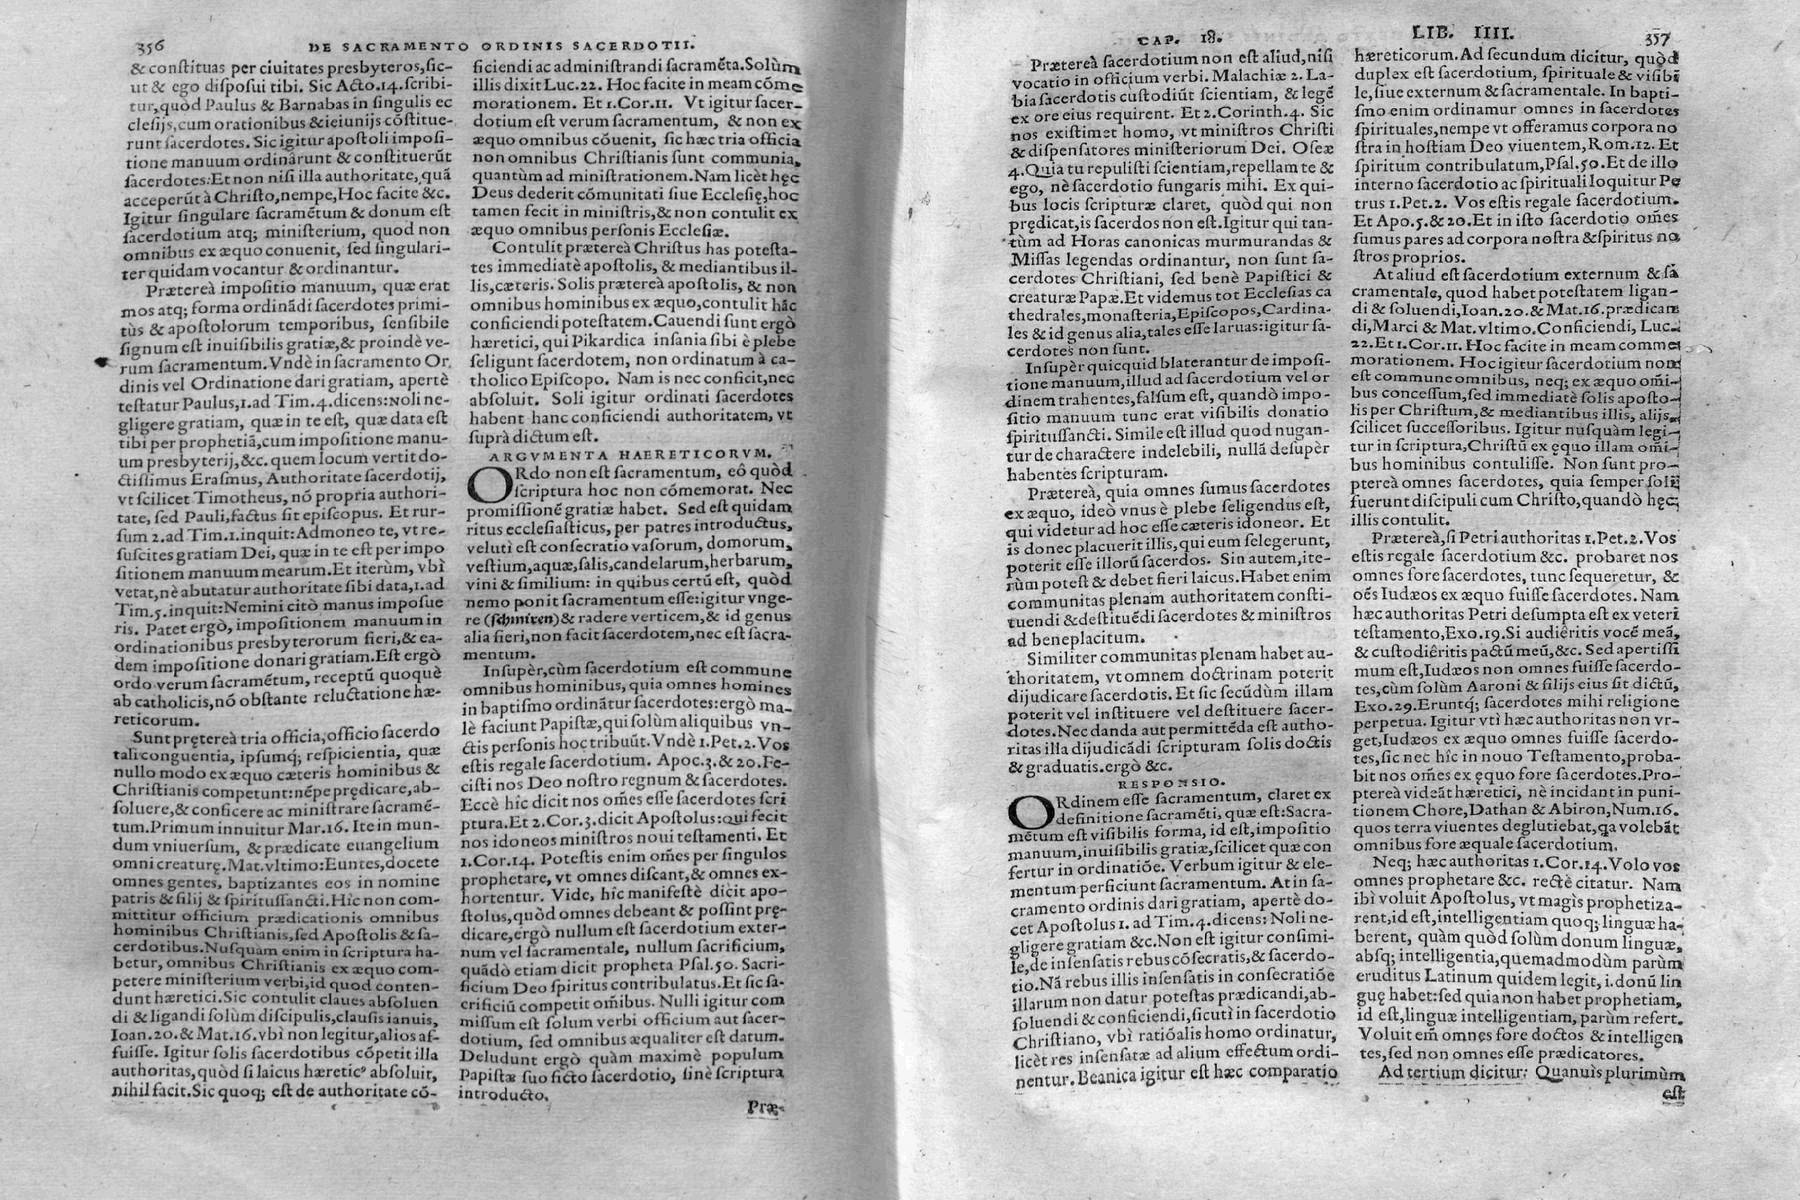 356
DE SACRAMENTO ORDINIS SACERDOTII.
& constituas per ciuitates presbyteros,sic-
ut & ego disposui tibi. Sic Acto.14.scribi-
tur,quòd Paulus & Barnabas in singulis ec
clesijs,cum orationibus & ieiunijs cõstitue-
runt sacerdotes. Sic igitur apostoli imposi-
tione manuum ordinârunt & constituerũt
sacerdotes:Et non nisi illa authoritate,quã
acceperũt à Christo,nempe,Hoc facite &c.
Igitur singulare sacramẽtum & donum est
sacerdotium atq; ministerium, quod non
omnibus ex æquo conuenit, sed singulari-
ter quidam vocantur & ordinantur.
Prætereà impositio manuum, quæ erat
mos atq; forma ordinãdi sacerdotes primi-
tùs & apostolorum temporibus, sensibile
signum est inuisibilis gratiæ,& proindè ve-
rum sacramentum. Vndè in sacramento Or
dinis vel Ordinatione dari gratiam, apertè
testatur Paulus,1.ad Tim.4.dicens:Noli ne-
gligere gratiam, quæ in te est, quæ data est
tibi per prophetiã,cum impositione manu-
um presbyterij,&c. quem locum vertit do-
ctissimus Erasmus, Authoritate sacerdotij,
vt scilicet Timotheus, nõ propria authori-
tate, sed Pauli,factus sit episcopus. Et rur-
sum 2.ad Tim.1.inquit:Admoneo te, vt re-
suscites gratiam Dei, quæ in te est per impo
sitionem manuum mearum. Et iterùm, vbì
vetat,nè abutatur authoritate sibi data,1.ad
Tim.5.inquit:Nemini citò manus imposue
ris. Patet ergò, impositionem manuum in
ordinationibus presbyterorum fieri,& ea-
dem impositione donari gratiam.Est ergò
ordo verum sacramẽtum, receptũ quoquè
ab catholicis,nõ obstante reluctatione hæ-
reticorum.
Sunt prętereà tria officia,officio sacerdo
tali congruentia, ipsumq; respicientia, quæ
nullo modo ex æquo cæteris hominibus &
Christianis competunt:nẽpe prędicare,ab-
soluere,& conficere ac ministrare sacramẽ-
tum.Primum innuitur Mar.16. Ite in mun-
dum vniuersum, & prædicate euangelium
omni creaturę.Mat.vltimo:Euntes,docete
omnes gentes, baptizantes eos in nomine
patris & filij & spiritussancti.Hîc non com-
mittitur officium prædicationis omnibus
hominibus Christianis,sed Apostolis & sa-
cerdotibus.Nusquàm enim in scriptura ha-
betur, omnibus Christianis ex æquo com-
petere ministerium verbi,id quod conten-
dunt hæretici.Sic contulit claues absoluen
di & ligandi solùm discipulis,clausis ianuis,
Ioan.20.& Mat.16.vbì non legitur,alios af-
fuisse. Igitur solis sacerdotibus cõpetit illa
authoritas,quòd si laicus hæreticꝰ absoluit,
nihil facit.Sic quoq; est de authoritate cõ-
ficiendi ac administrandi sacramẽta.Solùm
illis dixit Luc.22. Hoc facite in meam cõme
morationem. Et 1.Cor.11. Vt igitur sacer-
dotium est verum sacramentum, & non ex
æquo omnibus cõuenit, sic hæc tria officia
non omnibus Christianis sunt communia,
quantùm ad ministrationem.Nam licèt hęc
Deus dederit cõmunitati siue Ecclesię,hoc
tamen fecit in ministris,& non contulit ex
æquo omnibus personis Ecclesiæ.
Contulit prætereà Christus has potesta-
tes immediatè apostolis, & mediantibus il-
lis,cæteris. Solis prætereà apostolis, & non
omnibus hominibus ex æquo,contulit hãc
conficiendi potestatem.Cauendi sunt ergò
hæretici, qui Pikardica insania sibi è plebe
seligunt sacerdotem, non ordinatum à ca-
tholico Episcopo. Nam is nec conficit,nec
absoluit. Soli igitur ordinati sacerdotes
habent hanc conficiendi authoritatem, vt
suprà dictum est.
ARGVMENTA HAERETICORVM.
ORdo non est sacramentum, eò quòd
scriptura hoc non cõmemorat. Nec
promissionẽ gratiæ habet. Sed est quidam
ritus ecclesiasticus, per patres introductus,
velutì est consecratio vasorum, domorum,
vestium,aquæ,salis,candelarum,herbarum,
vini & similium: in quibus certũ est, quòd
nemo ponit sacramentum esse:igitur vnge-
re (schmiren) & radere verticem,& id genus
alia fieri,non facit sacerdotem,nec est sacra-
mentum.
Insupèr,cùm sacerdotium est commune
omnibus hominibus, quia omnes homines
in baptismo ordinãtur sacerdotes:ergò ma-
lè faciunt Papistæ,qui solùm aliquibus vn-
ctis personis hoc tribuũt.Vndè 1.Pet.2. Vos
estis regale sacerdotium. Apoc.3.& 20.Fe-
cisti nos Deo nostro regnum & sacerdotes.
Eccè hîc dicit nos om̃es esse sacerdotes scri
ptura.Et 2.Cor.3.dicit Apostolus:qui fecit
nos idoneos ministros noui testamenti. Et
1.Cor.14. Potestis enim om̃es per singulos
prophetare, vt omnes discant,& omnes ex-
hortentur. Vide, hîc manifestè dicit apo-
stolus,quòd omnes debeant & possint prę-
dicare,ergò nullum est sacerdotium exter-
num vel sacramentale, nullum sacrificium,
quãdò etiam dicit propheta Psal.50. Sacri-
ficium Deo spiritus contribulatus.Et sic sa-
crificiũ competit om̃ibus. Nulli igitur com
missum est solum verbi officium aut sacer-
dotium, sed omnibus æqualiter est datum.
Deludunt ergò quàm maximè populum
Papistæ suo ficto sacerdotio, sinè scriptura
introducto.
Præ-
CAP. 18.
LIB. IIII.
357
Prætereà sacerdotium non est aliud,nisi
vocatio in officium verbi. Malachiæ 2. La-
bia sacerdotis custodiũt scientiam, & legẽ
ex ore eius requirent. Et 2.Corinth.4. Sic
nos existimet homo, vt ministros Christi
& dispensatores ministeriorum Dei. Oseæ
4.Quia tu repulisti scientiam,repellam te &
ego, nè sacerdotio fungaris mihi. Ex qui-
bus locis scripturæ claret, quòd qui non
prędicat,is sacerdos non est.Igitur qui tan-
tùm ad Horas canonicas murmurandas &
Missas legendas ordinantur, non sunt sa-
cerdotes Christiani, sed benè Papistici &
creaturæ Papæ.Et videmus tot Ecclesias ca
thedrales,monasteria,Episcopos,Cardina-
les & id genus alia,tales esse laruas:igitur sa-
cerdotes non sunt.
Insupèr quicquid blaterantur de imposi-
tione manuum,illud ad sacerdotium vel or
dinem trahentes,falsum est, quandò impo-
sitio manuum tunc erat visibilis donatio
spiritussancti. Simile est illud quod nugan-
tur de charactere indelebili, nullã desupèr
habentes scripturam.
Prætereà, quia omnes sumus sacerdotes
ex æquo, ideò vnus è plebe seligendus est,
qui videtur ad hoc esse cæteris idoneor. Et
is donec placuerit illis,qui eum selegerunt,
poterit esse illorũ sacerdos. Sin autem,ite-
rùm potest & debet fieri laicus.Habet enim
communitas plenam authoritatem consti-
tuendi & destituẽdi sacerdotes & ministros
ad beneplacitum.
Similiter communitas plenam habet au-
thoritatem, vt omnem doctrinam poterit
dijudicare sacerdotis. Et sic secũdùm illam
poterit vel instituere vel destituere sacer-
dotes.Nec danda aut permittẽda est autho-
ritas illa dijudicãdi scripturam solis doctis
& graduatis.ergò &c.
RESPONSIO.
ORdinem esse sacramentum, claret ex
definitione sacramẽti, quæ est:Sacra-
mẽtum est visibilis forma, id est,impositio
manuum,inuisibilis gratiæ,scilicet quæ con
fertur in ordinatiõe. Verbum igitur & ele-
mentum perficiunt sacramentum. At in sa-
cramento ordinis dari gratiam, apertè do-
cet Apostolus 1. ad Tim.4.dicens: Noli ne-
gligere gratiam &c.Non est igitur consimi-
le,de insensatis rebus cõsecratis,& sacerdo-
tio.Nã rebus illis insensatis in consecratiõe
illarum non datur potestas prædicandi,ab-
soluendi & conficiendi,sicuti in sacerdotio
Christiano, vbì ratiõalis homo ordinatur,
licèt res insensatæ ad alium effectum ordi-
nentur. Beanica igitur est hæc comparatio
hæreticorum. Ad secundum dicitur, quòd
duplex est sacerdotium, spirituale & visibi
le,siue externum & sacramentale. In bapti-
smo enim ordinamur omnes in sacerdotes
spirituales,nempe vt offeramus corpora no
stra in hostiam Deo viuentem,Rom.12. Et
spiritum contribulatum,Psal.50.Et de illo
interno sacerdotio ac spirituali loquitur Pe
trus 1.Pet.2. Vos estis regale sacerdotium.
Et Apo.5.& 20.Et in isto sacerdotio om̃es
sumus pares ad corpora nostra & spiritus no
stros proprios.
At aliud est sacerdotium externum & sa
cramentale, quod habet potestatem ligan-
di & soluendi,Ioan.20.& Mat.16.prædican
di,Marci & Mat.vltimo.Conficiendi, Luc.
22.Et 1.Cor.11. Hoc facite in meam comme
morationem. Hoc igitur sacerdotium non
est commune omnibus, neq; ex æquo om̃i-
bus concessum,sed immediatè solis aposto-
lis per Christum,& mediantibus illis, alijs,
scilicet successoribus. Igitur nusquàm legi-
tur in scriptura,Christũ ex ęquo illam om̃i-
bus hominibus contulisse. Non sunt pro-
ptereà omnes sacerdotes, quia semper soli
fuerunt discipuli cum Christo,quandò hęc
illis contulit.
Prætereà,si Petri authoritas 1.Pet.2. Vos
estis regale sacerdotium &c. probaret nos
omnes fore sacerdotes, tunc sequeretur, &
oẽs Iudæos ex æquo fuisse sacerdotes. Nam
hæc authoritas Petri desumpta est ex veteri
testamento,Exo.19.Si audiêritis vocẽ meã,
& custodiêritis pactũ meũ,&c. Sed apertissi
mum est,Iudæos non omnes fuisse sacerdo-
tes,cùm solùm Aaroni & filijs eius sit dictũ,
Exo.29.Eruntq; sacerdotes mihi religione
perpetua. Igitur vti hæc authoritas non vr-
get,Iudæos ex æquo omnes fuisse sacerdo-
tes,sic nec hîc in nouo Testamento,proba-
bit nos om̃es ex ęquo fore sacerdotes.Pro-
ptereà videãt hæretici, nè incidant in puni-
tionem Chore,Dathan & Abiron,Num.16.
quos terra viuentes deglutiebat,qa volebãt
omnibus fore æquale sacerdotium.
Neq; hæc authoritas 1.Cor.14.Volo vos
omnes prophetare &c. rectè citatur. Nam
ibì voluit Apostolus, vt magis prophetiza-
rent,id est,intelligentiam quoq; linguæ ha-
berent, quàm quòd solùm donum linguæ,
absq; intelligentia,quemadmodùm parùm
eruditus Latinum quidem legit, i.donũ lin
guę habet:sed quia non habet prophetiam,
id est,linguæ intelligentiam, parùm refert.
Voluit em̃ omnes fore doctos & intelligen
tes,sed non omnes esse prædicatores.
Ad tertium dicitur: Quanuìs plurimùm
est